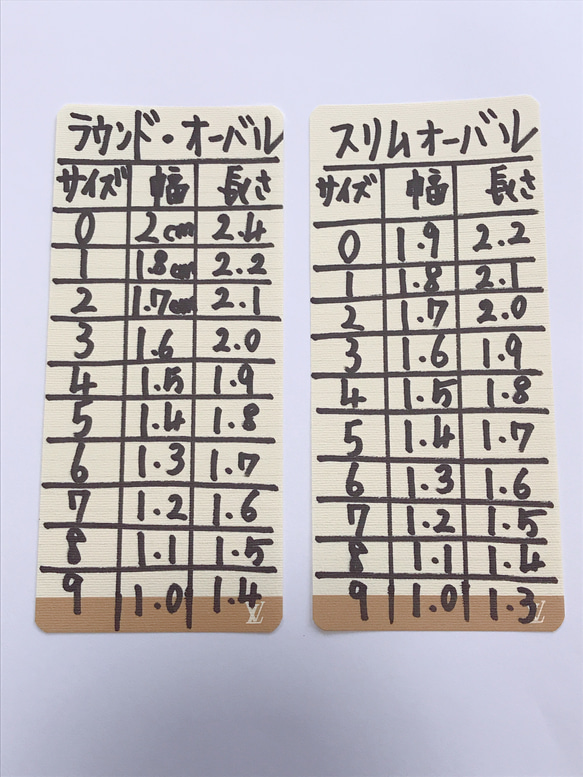 ラウンド・オーバル
サイズ 幅 長さ
0 2cm 2.4
1 1.8cm 2.2
2 1.7cm 2.1
3 1.6 2.0
4 1.5 1.9
5 1.4 1.8
6 1.3 1.7
7 1.2 1.6
8 1.1 1.5
9 1.0 1.4
LV
スリムオーバル
サイズ 幅 長さ
0 1.9 2.2
1 1.8 2.1
2 1.7 2.0
3 1.6 1.9
4 1.5 1.8
5 1.4 1.7
6 1.3 1.6
7 1.2 1.5
8 1.1 1.4
9 1.0 1.3
LV